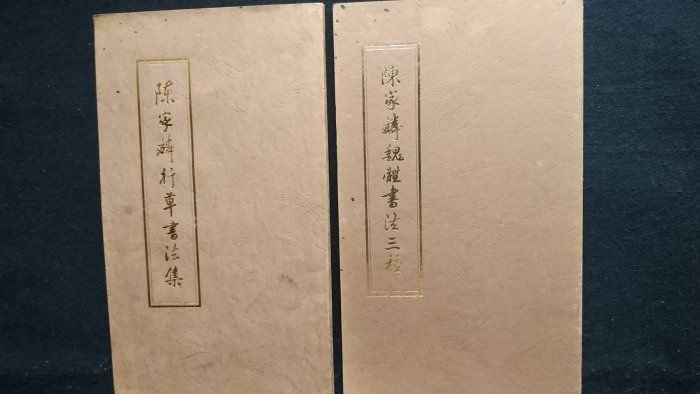 陈家麟行草書法集
陳家麟魏體書法三种